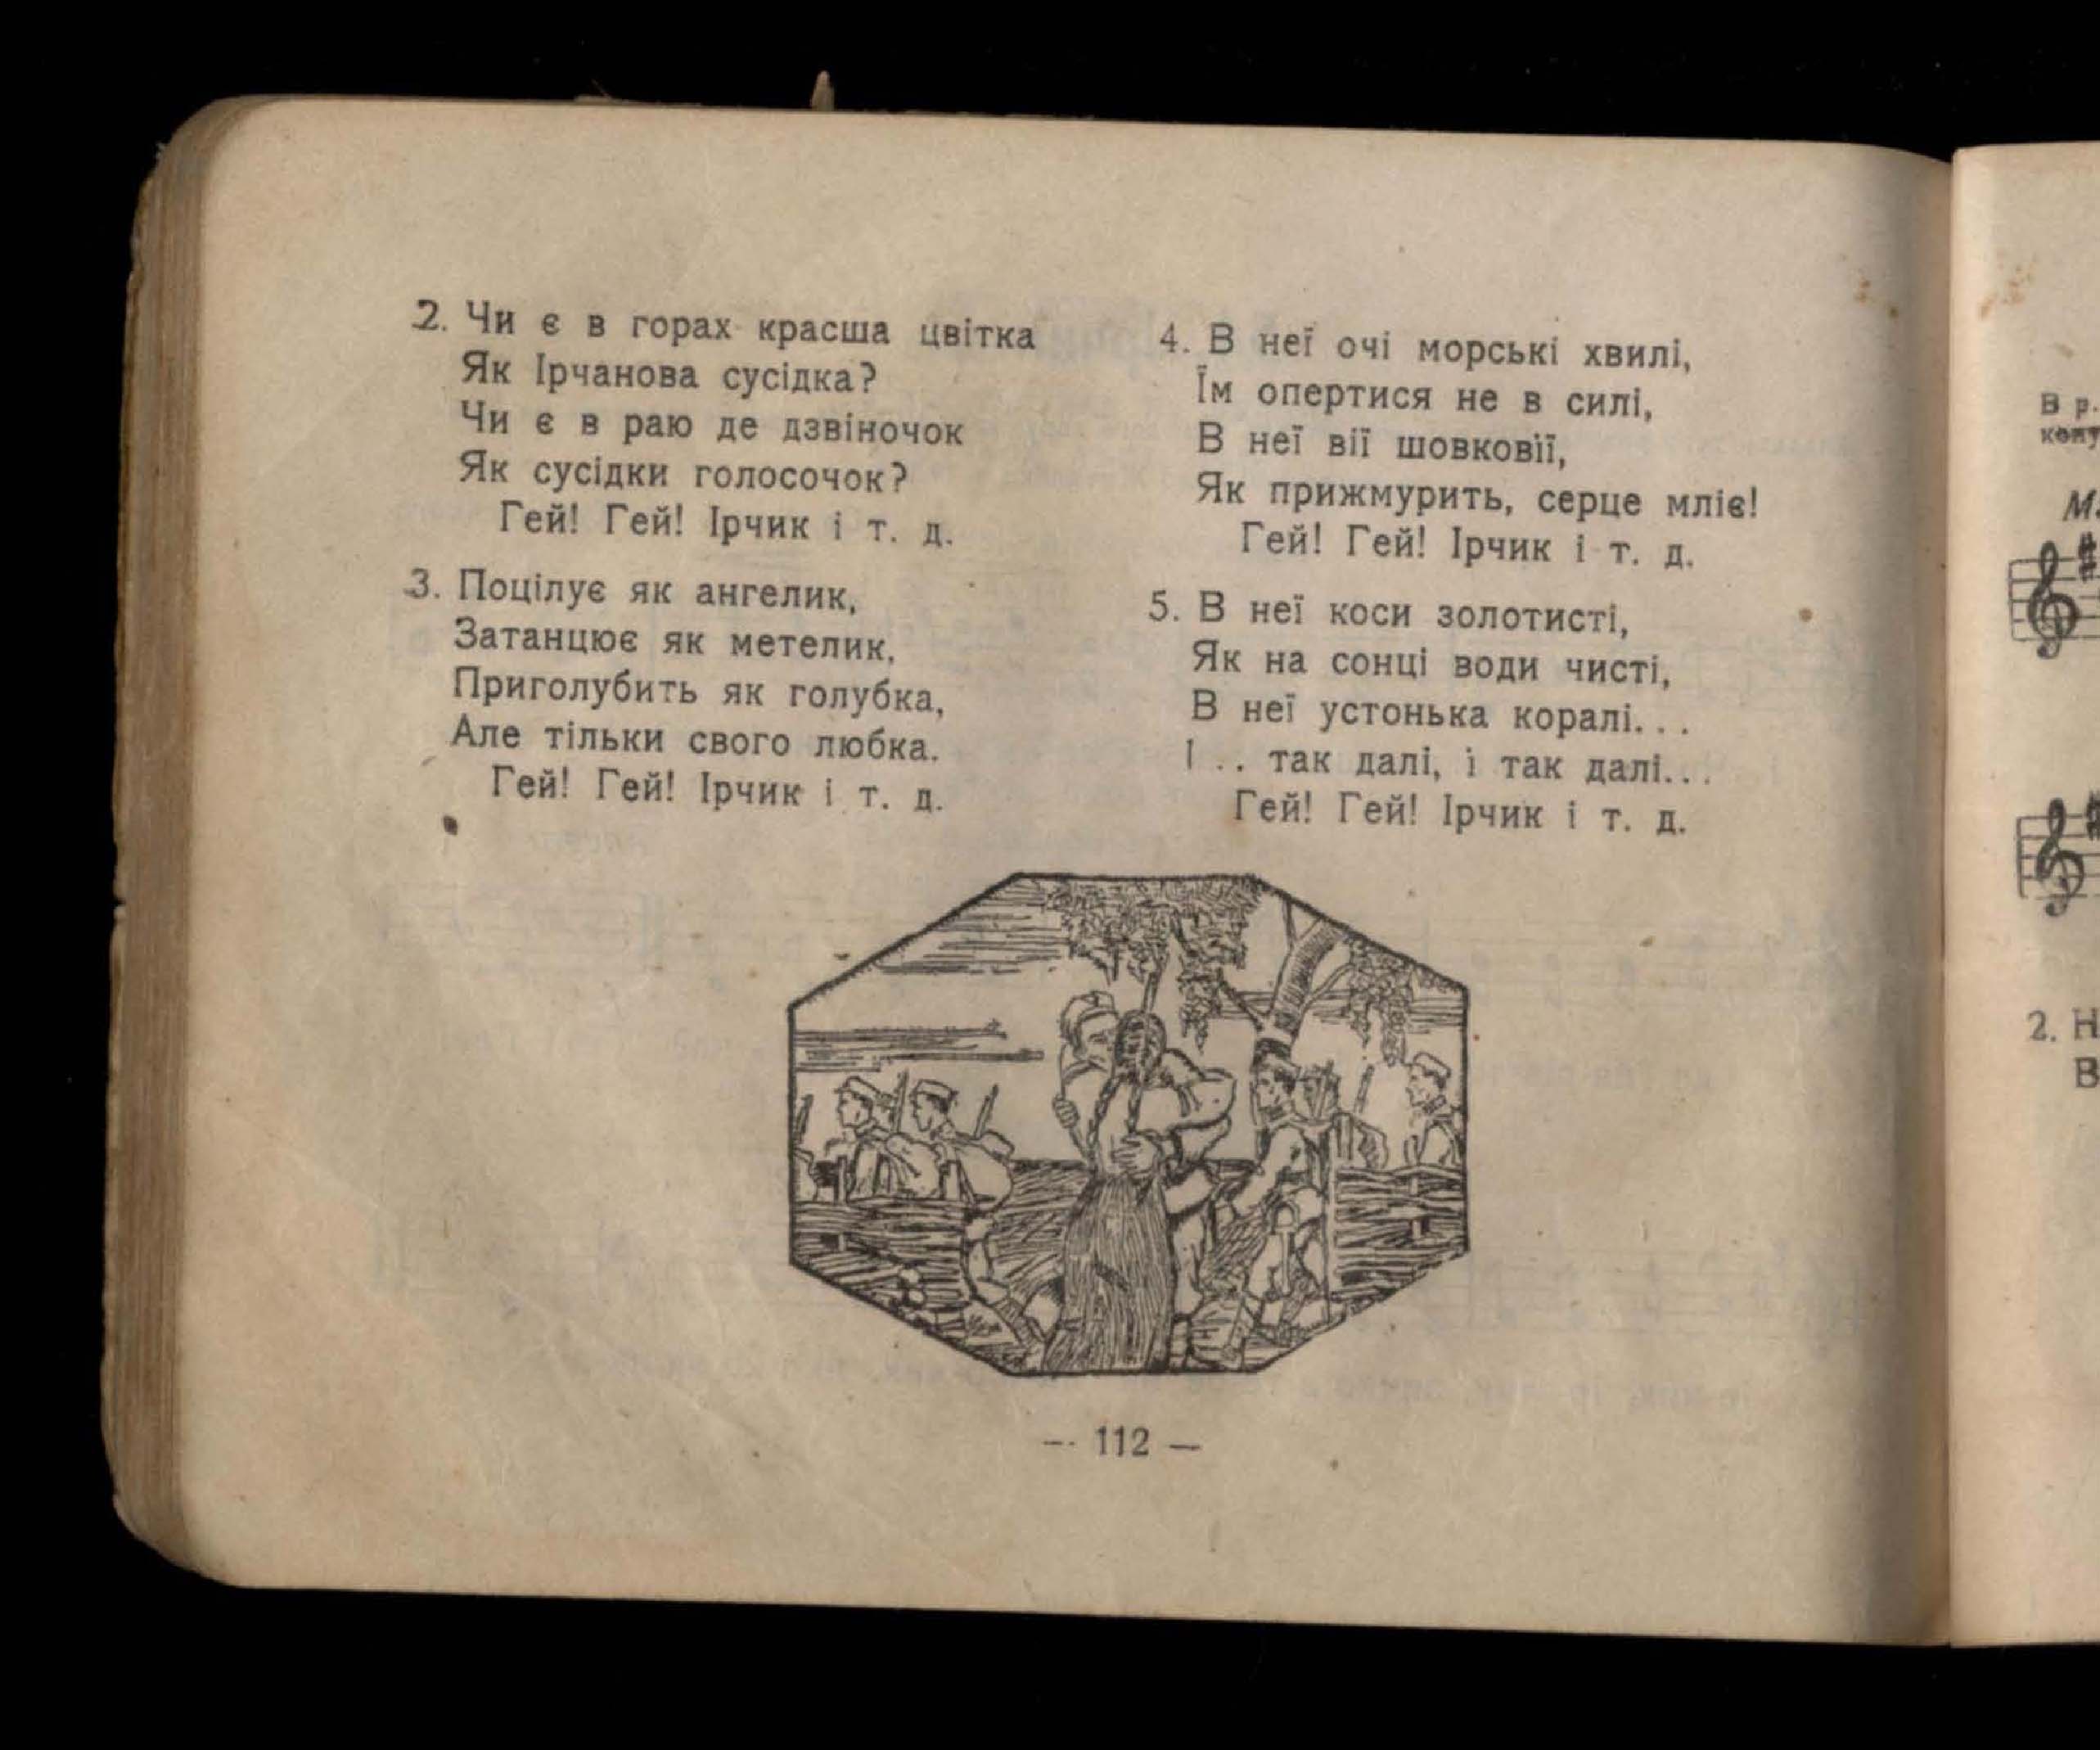 2. Чи є в горах красша цвітка
Як Ірчанова сусідка?
Чи є в раю де дзвіночок
Як сусідки голосочок?
Гей! Гей! Ірчик і т. д.
3. Поцілує як ангелик,
Затанцює як метелик,
Приголубить як голубка,
Але тільки свого любка.
Гей! Гей! Ірчик і т. д.
4. В неї очі морські хвилі,
Їм опертися не в силі,
В неї вії шовковії,
Як прижмурить, серце мліє!
Гей! Гей! Ірчик і т. д.
5. В неї коси золотисті,
Як на сонці води чисті,
В неї устонька коралі...
І .. так далі, і так далі...
Гей! Гей! Ірчик і т. д.
— 112 —
В р.
2. Н
В